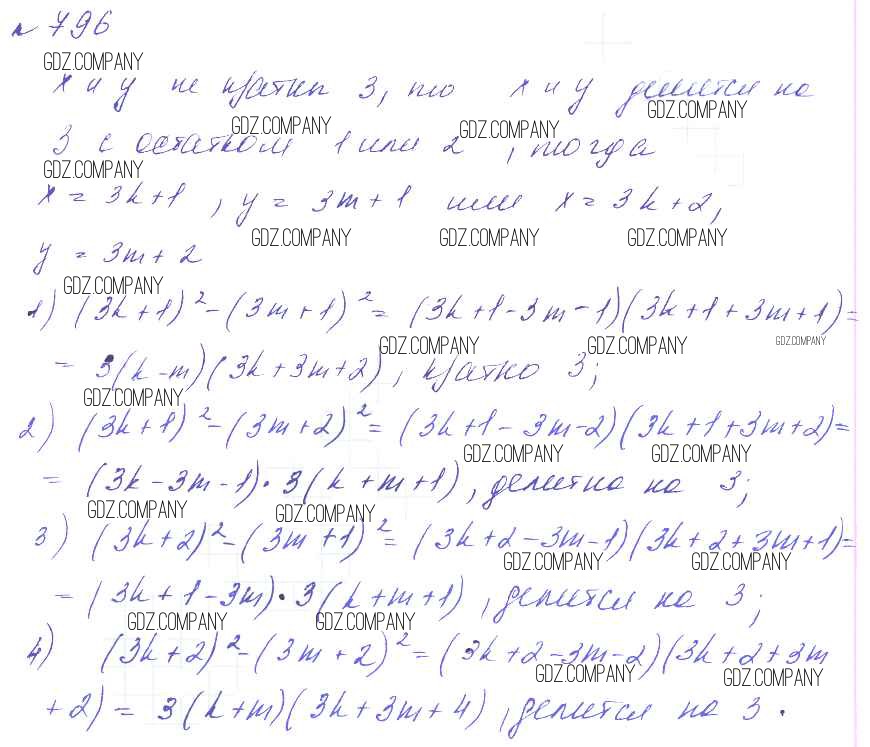 № 796
GDZ.COMPANY
x и y не кратны 3, то x и y делится на
GDZ.COMPANY
GDZ.COMPANY GDZ.COMPANY
3 с остатком 1 или 2, тогда
GDZ.COMPANY
x = 3k+1, y = 3m+1 или x = 3k+2,
GDZ.COMPANY GDZ.COMPANY GDZ.COMPANY
y = 3m+2
GDZ.COMPANY
1) (3k+1)² - (3m+1)² = (3k+1-3m-1)(3k+1+3m+1)=
GDZ.COMPANY GDZ.COMPANY GDZ.COMPANY
= 3(k-m)(3k+3m+2), кратно 3;
GDZ.COMPANY
2) (3k+1)² - (3m+2)² = (3k+1-3m-2)(3k+1+3m+2)=
GDZ.COMPANY GDZ.COMPANY
= (3k-3m-1)·3(k+m+1), делится на 3;
GDZ.COMPANY GDZ.COMPANY
3) (3k+2)² - (3m+1)² = (3k+2-3m-1)(3k+2+3m+1)=
GDZ.COMPANY GDZ.COMPANY
= (3k+1-3m)·3(k+m+1), делится на 3;
GDZ.COMPANY GDZ.COMPANY
4) (3k+2)² - (3m+2)² = (3k+2-3m-2)(3k+2+3m
GDZ.COMPANY GDZ.COMPANY
+2) = 3(k+m)(3k+3m+4), делится на 3.